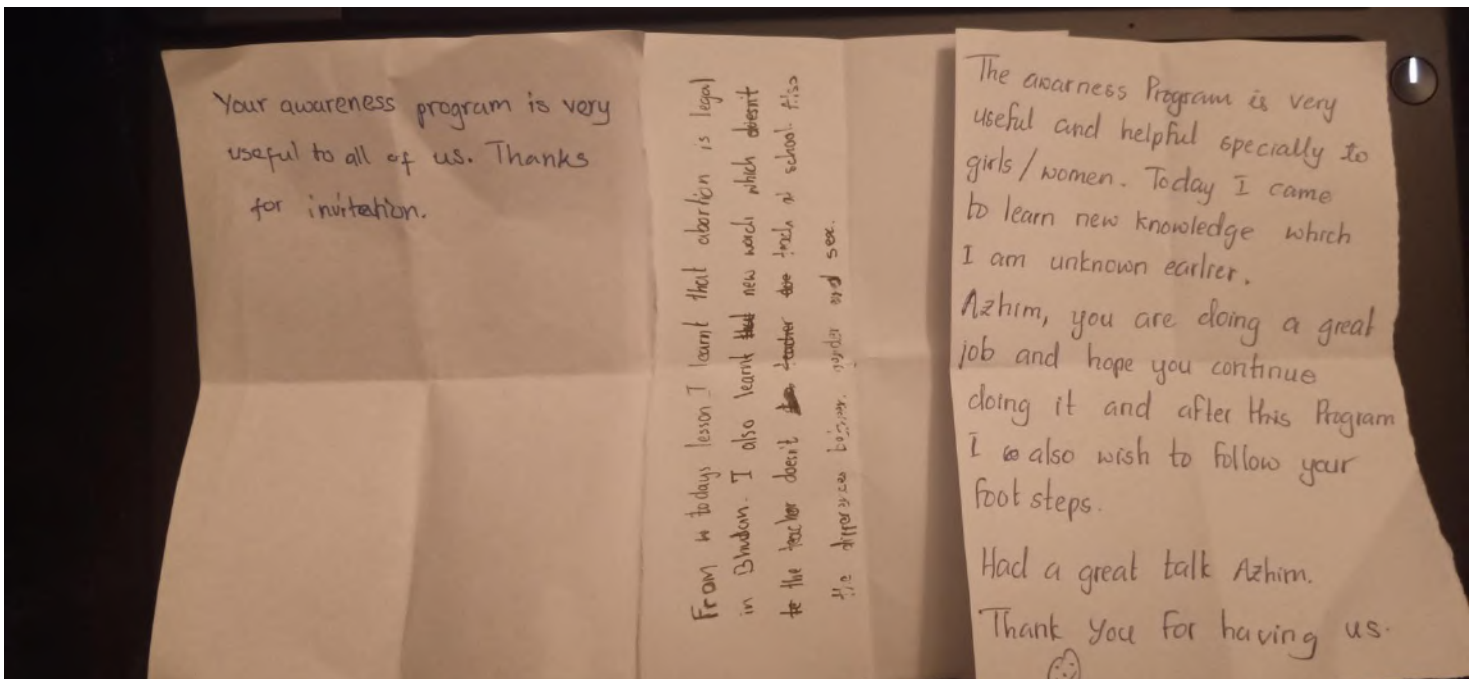 Your awareness program is very
useful to all of us. Thanks
for invitation.
From todays lesson I learnt that abortion is legal
in Bhutan. I also learnt new which doesn't
the teacher doesn't teach at school. this
the differences gender and sex.
The awarness Program is very
useful and helpful specially to
girls/women. Today I came
to learn new knowledge which
I am unknown earlier.
Azhim, you are doing a great
job and hope you continue
doing it and after this Program
I also wish to follow your
foot steps.
Had a great talk Azhim.
Thank you for having us.